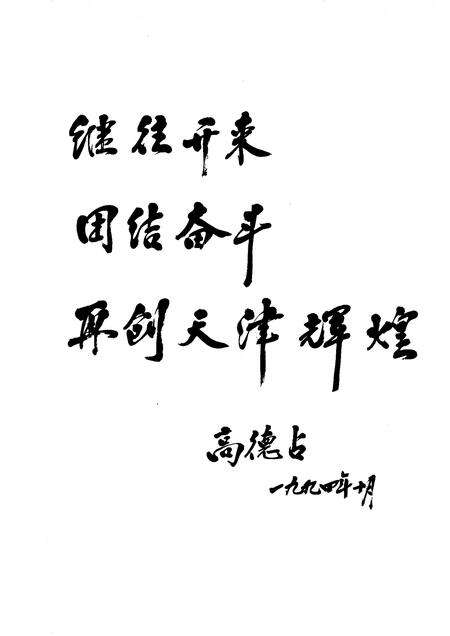 继往开来
团结奋斗
再创天津辉煌
高德占
一九九四年十月